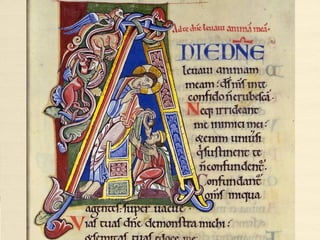 Ad te dñe levavi animā meā.
AD TE DÑE
levavi animam
meam : dš mš in te
confido ñ erubescā
Neq; irrideant
me inimici mei :
& enim univsi
q̄ sustinent te
ñ confundent᷑.
Confundant᷑
oms iniqua
agentes : super vacue.
Vias tuas dñe demonstra michi :
& semitas tuas edoce me.